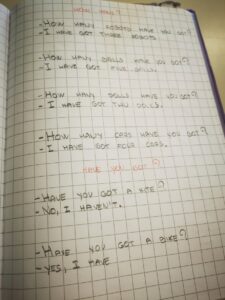 HOW MANY?
-HOW MANY ROBOTS HAVE YOU GOT?
-I HAVE GOT THREE ROBOTS.
-HOW MANY BALLS HAVE YOU GOT?
-I HAVE GOT FIVE BALLS.
-HOW MANY DOLLS HAVE YOU GOT?
-I HAVE GOT TWO DOLLS.
-HOW MANY CARS HAVE YOU GOT?
-I HAVE GOT FOUR CARS.
HAVE YOU GOT ?
-HAVE YOU GOT A KITE?
-NO, I HAVEN'T.
-HAVE YOU GOT A BIKE?
-YES, I HAVE